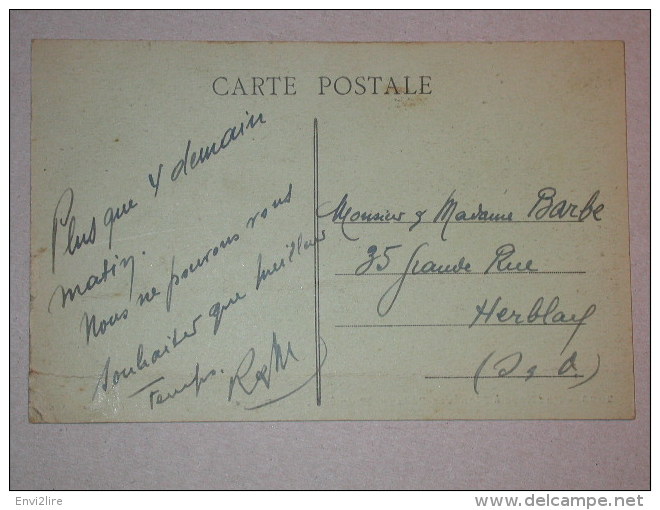 CARTE POSTALE
Plus que 4 demain
matin.
Nous ne pouvons vous
souhaiter que meilleur
Temps.
Monsieur & Madame Barbe
35 Grande Rue
Herblay
(S & O)
Envi2lire
www.delcampe.net